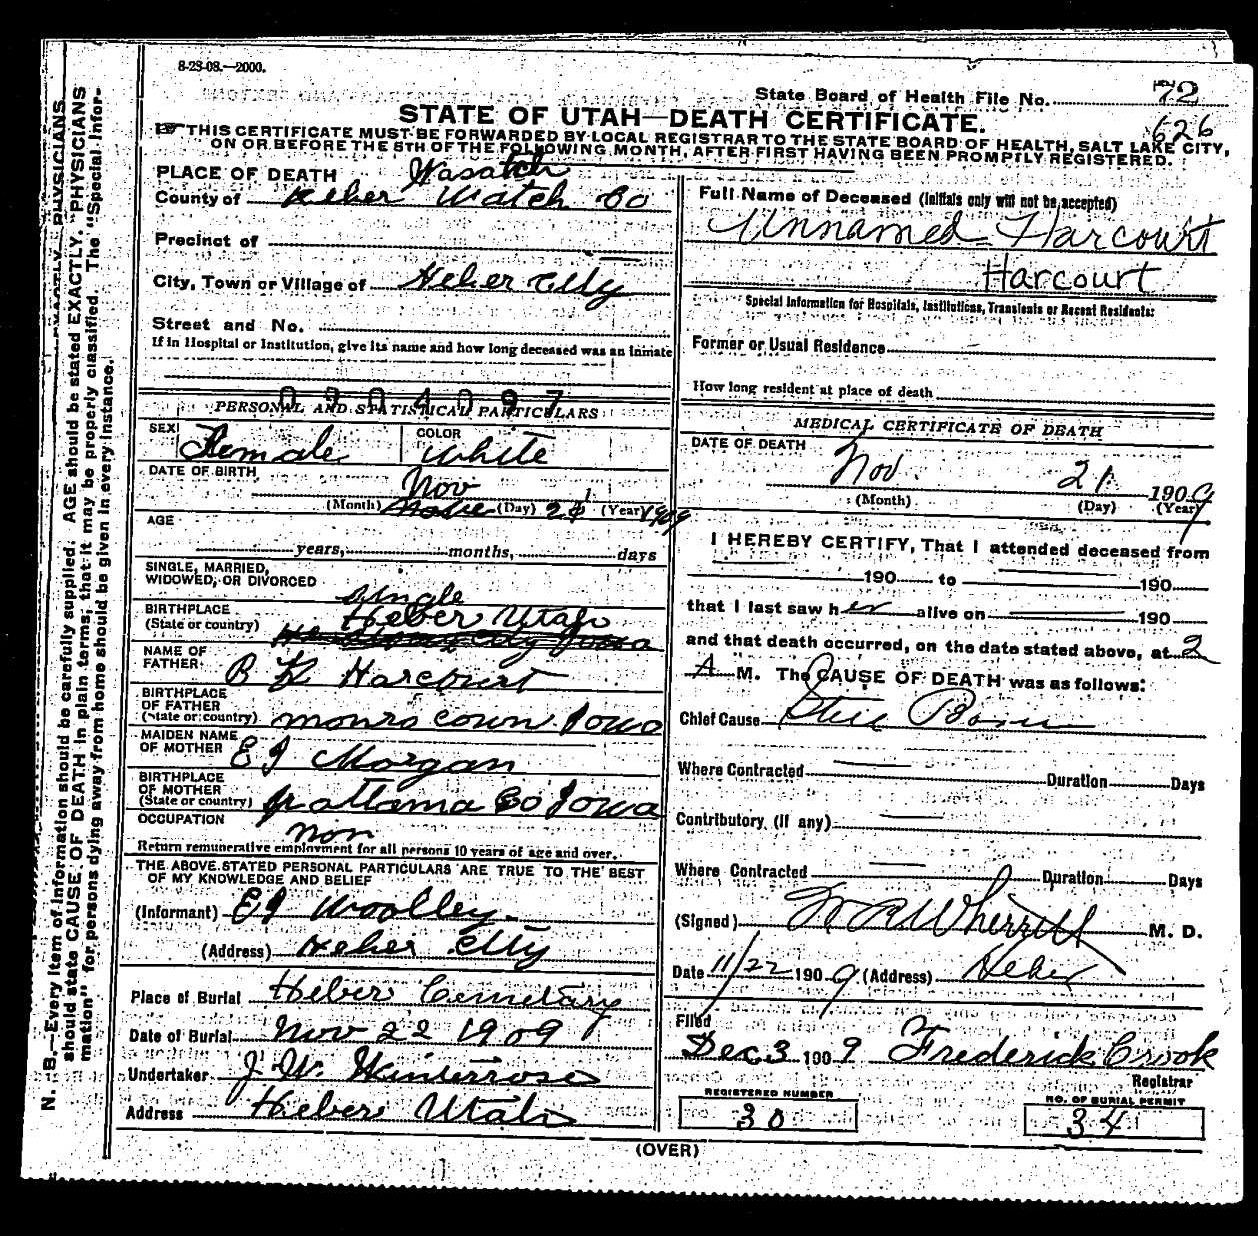 8-23-08.—2000.
State Board of Health File No. 72
STATE OF UTAH—DEATH CERTIFICATE.
626
THIS CERTIFICATE MUST BE FORWARDED BY LOCAL REGISTRAR TO THE STATE BOARD OF HEALTH, SALT LAKE CITY,
ON OR BEFORE THE 5TH OF THE FOLLOWING MONTH, AFTER FIRST HAVING BEEN PROMPTLY REGISTERED.
N. B.—Every item of information should be carefully supplied. AGE should be stated EXACTLY. PHYSICIANS
should state CAUSE OF DEATH in plain terms, that it may be properly classified. The "Special Infor-
mation" for persons dying away from home should be given in every instance.
PLACE OF DEATH Wasatch
County of Heber Watch Co
Precinct of
City, Town or Village of Heber City
Street and No.
If in Hospital or Institution, give its name and how long deceased was an inmate
PERSONAL AND STATISTICAL PARTICULARS
SEX Female COLOR White
DATE OF BIRTH
Nov
(Month) (Day) 21 (Year) 1909
AGE
years, months, days
SINGLE, MARRIED,
WIDOWED, OR DIVORCED
single
BIRTHPLACE Heber Utah
(State or country)
NAME OF
FATHER B H Harcourt
BIRTHPLACE
OF FATHER
(State or country) monro coun. Iowa
MAIDEN NAME
OF MOTHER E J Morgan
BIRTHPLACE
OF MOTHER
(State or country) pottama Co Iowa
OCCUPATION
Non
Return remunerative employment for all persons 10 years of age and over.
THE ABOVE STATED PERSONAL PARTICULARS ARE TRUE TO THE BEST
OF MY KNOWLEDGE AND BELIEF
(Informant) E J Woolley
(Address) Heber City
Place of Burial Heber Cemetary
Date of Burial Nov 22 1909
Undertaker J. W. Winterrose
Address Heber Utah
Full Name of Deceased (Initials only will not be accepted)
Unnamed Harcourt
Harcourt
Special Information for Hospitals, Institutions, Transients or Recent Residents:
Former or Usual Residence
How long resident at place of death
MEDICAL CERTIFICATE OF DEATH
DATE OF DEATH
Nov. 21 1909
(Month) (Day) (Year)
I HEREBY CERTIFY, That I attended deceased from
190 to 190
that I last saw her alive on 190
and that death occurred, on the date stated above, at 2
A M. The CAUSE OF DEATH was as follows:
Chief Cause Still Born
Where Contracted Duration Days
Contributory (if any)
Where Contracted Duration Days
(Signed) Wherritt M. D.
Date 11/22 1909 (Address) Heber
Filed
Dec 3 1909 Frederick Crook
Registrar
REGISTERED NUMBER
30
NO. OF BURIAL PERMIT
34
(OVER)